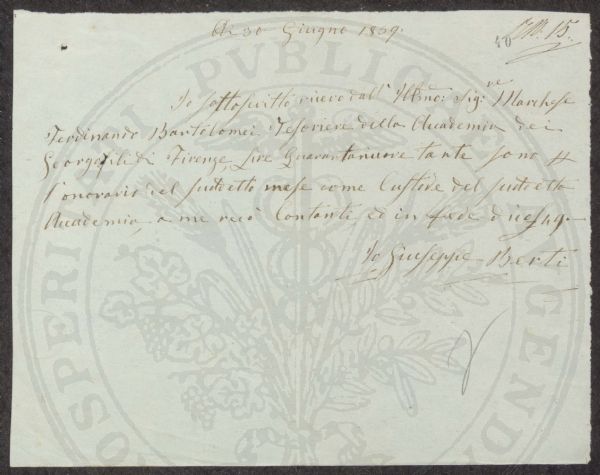 A dì 30 Giugno 1839.
40
N. 15.
Io sottoscritto ricevo dall' Illmo: Sig:re Marchese
Ferdinando Bartolomei Tesoriere della Academia dei
Georgofili di Firenze, Lire Quarantanuove tante sono p
l'onorario del sudetto mese come Custode del sudetto
Academia, a me recò Contanti ed in fede dico £ 49.-
Io Giuseppe Berti
PROSPERITATI PUBLICAE AUGENDAE